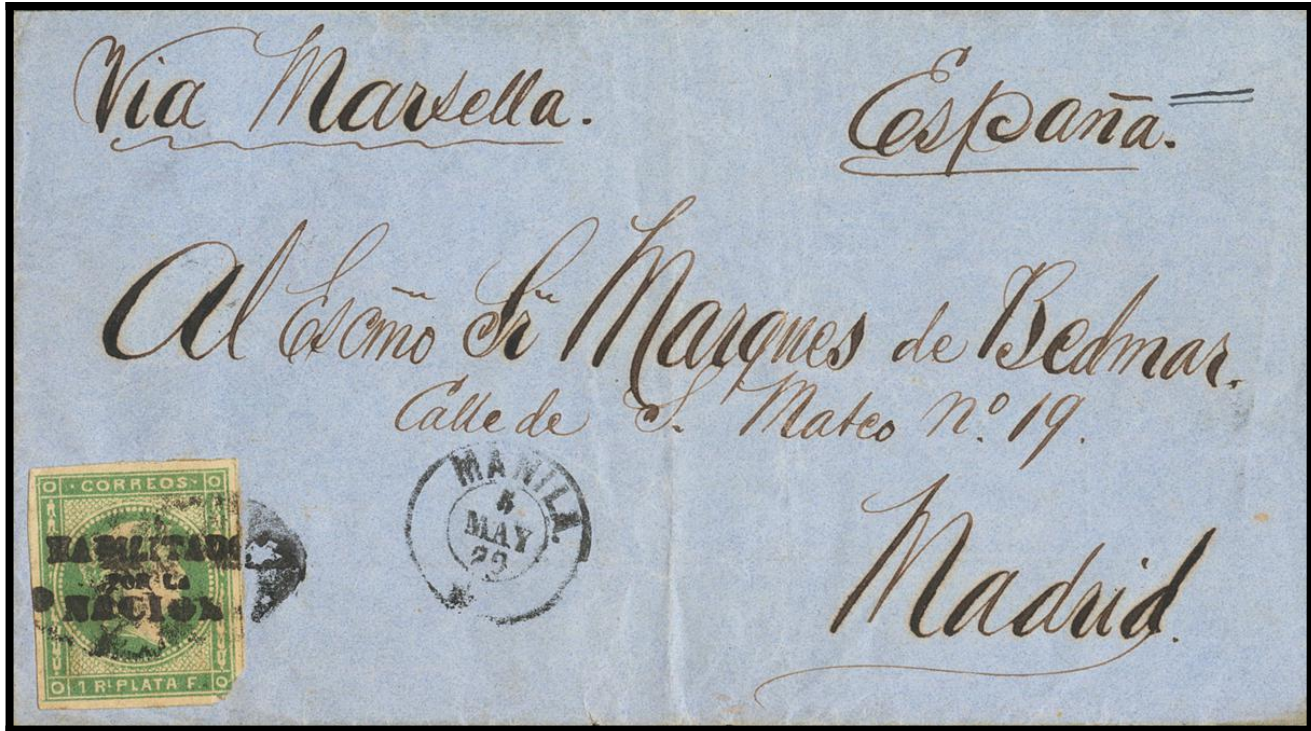 Via Marsella.
España.
Al Escmo Sr Marques de Bedmar.
Calle de S. Mateo nº. 19.
Madrid.
MANILA.
5
MAY
CORREOS
HABILITADO
POR LA
NACION
1 Rl PLATA F.